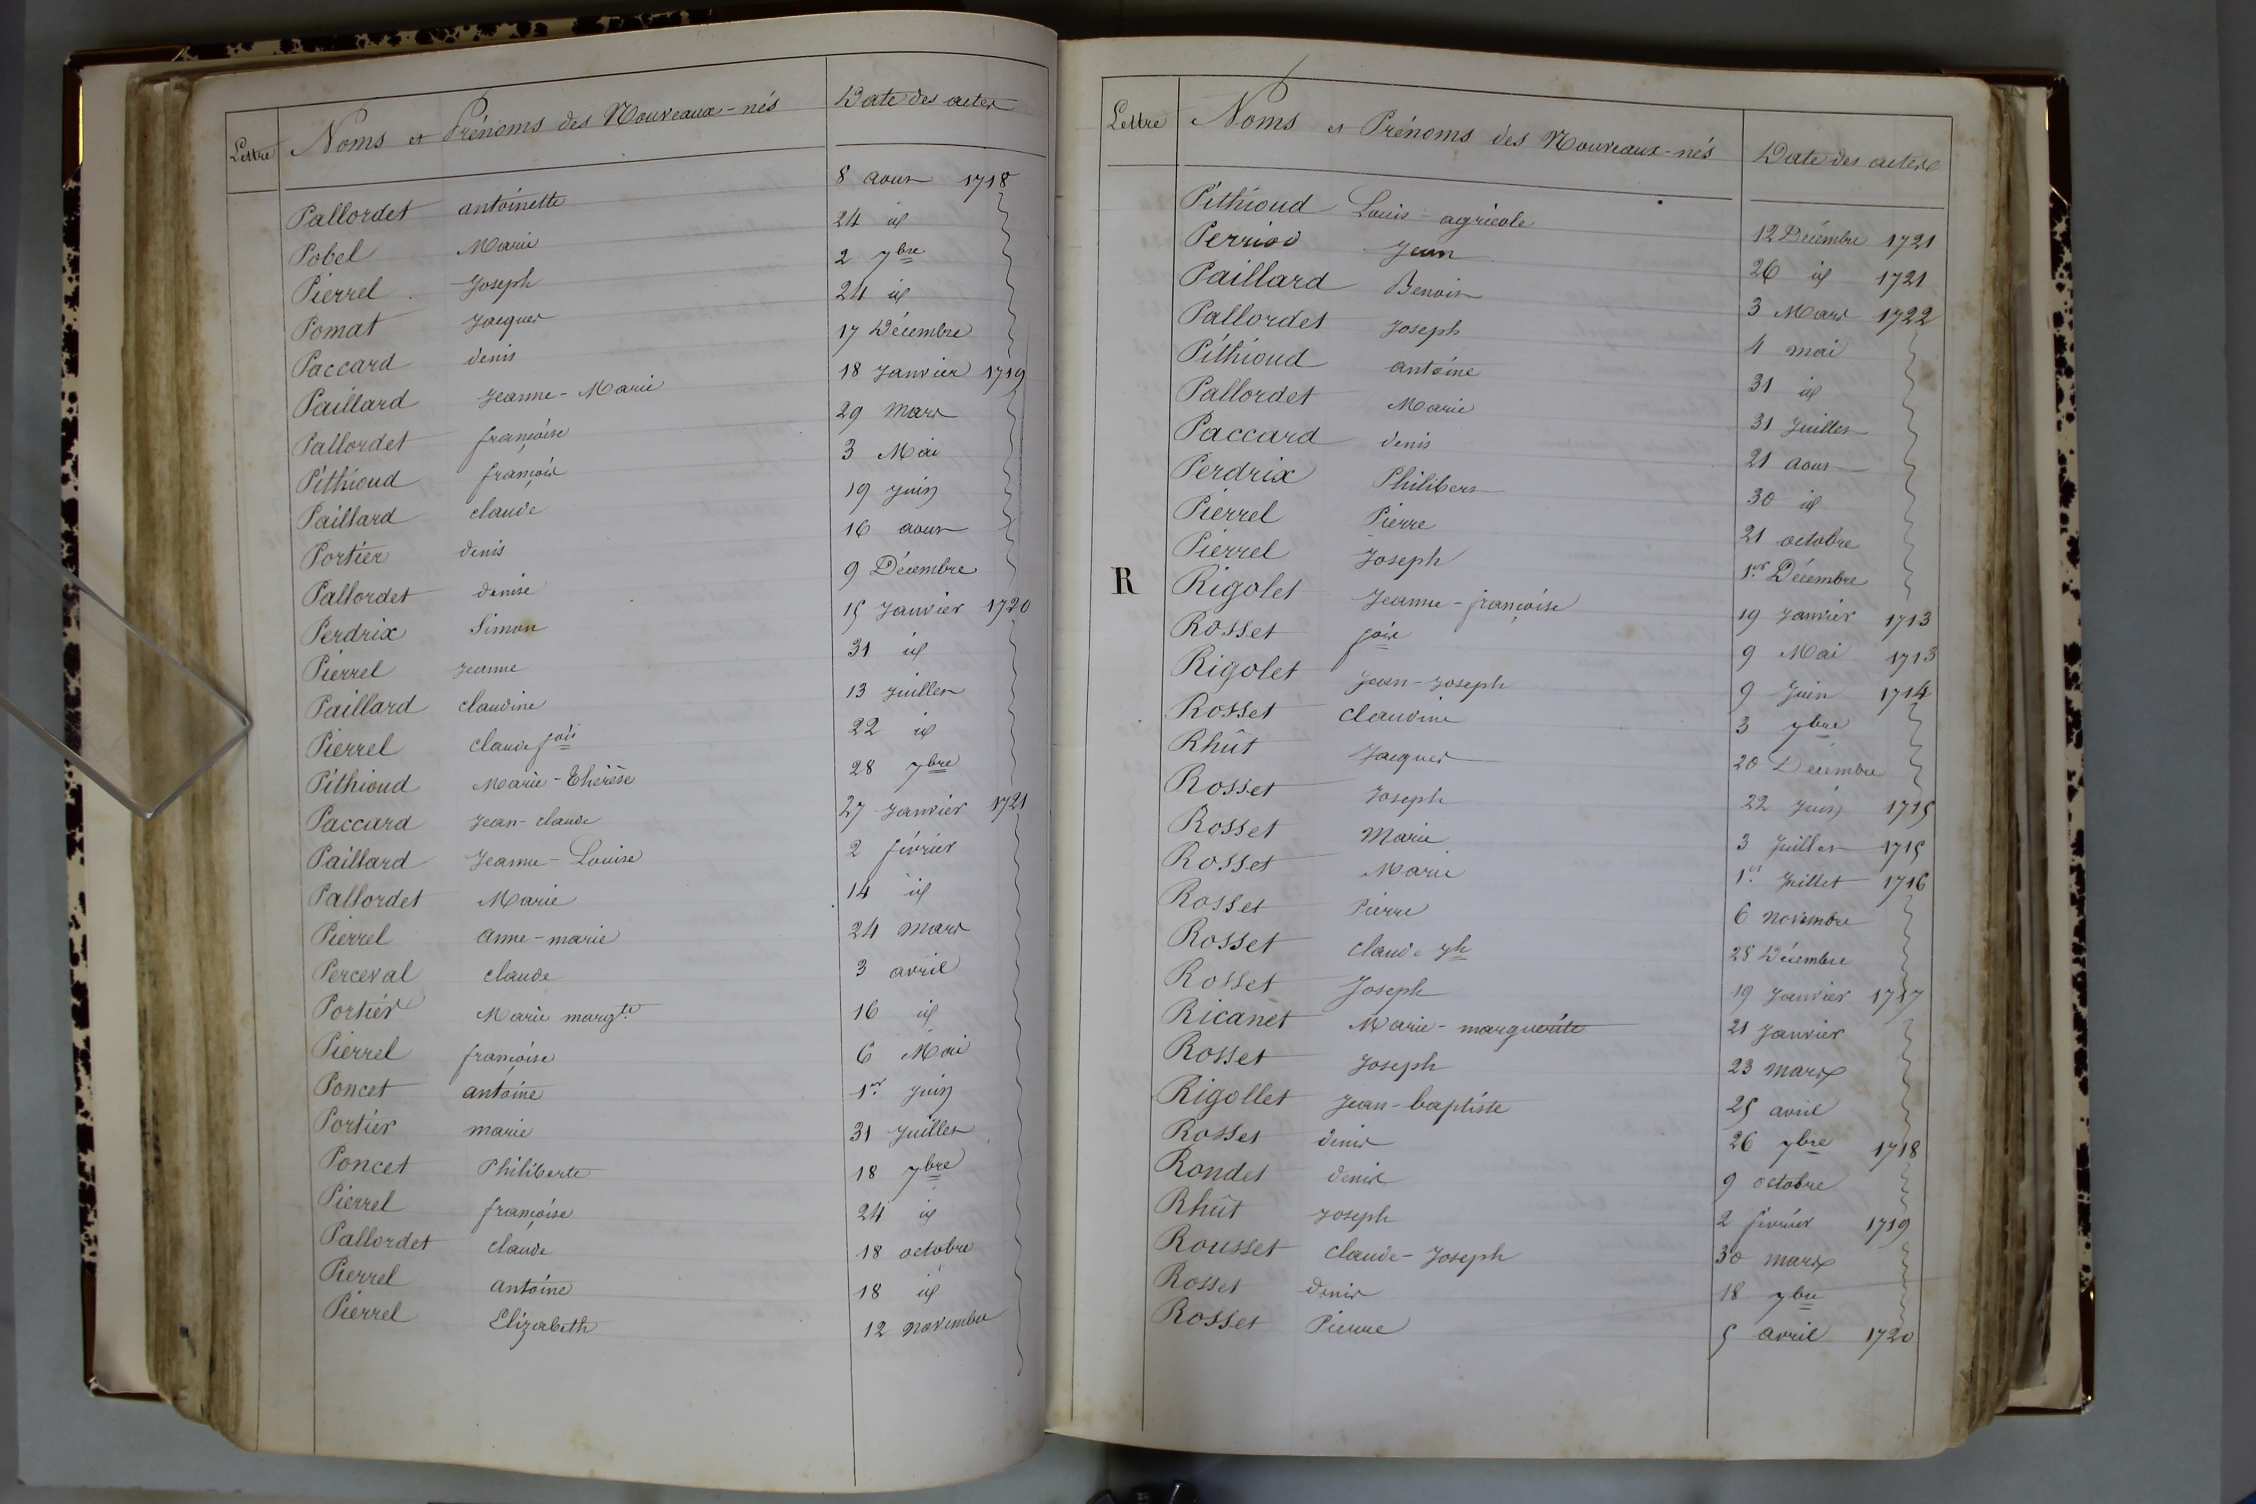 Lettre Noms et Prénoms des Nouveaux-nés Date des actes
Pallordet antoinette 8 aout 1718
Pobel Marie 24 id
Pierrel Joseph 2 7bre
Pomat Jacques 24 id
Paccard denis 17 Décembre
Paillard Jeanne-Marie 18 Janvier 1719
Pallordet françoise 29 Mars
Pithioud françois 3 Mai
Paillard claude 19 Juin
Portier denis 16 aout
Pallordet denise 9 Décembre
Perdrix Simon 15 Janvier 1720
Pierrel Jeanne 31 id
Paillard claudine 13 Juillet
Pierrel claude fois 22 id
Pithioud Marie-Thérèse 28 7bre
Paccard Jean-claude 27 Janvier 1721
Paillard Jeanne-Louise 2 février
Pallordet Marie 14 id
Pierrel anne-marie 24 mars
Perceval claude 3 avril
Portier Marie margte 16 id
Pierrel françoise 6 Mai
Poncet antoine 1er Juin
Portier marie 31 Juillet
Poncet Philiberte 18 7bre
Pierrel françoise 24 id
Pallordet claude 18 octobre
Pierrel antoine 18 id
Pierrel Elizabeth 12 novembre
Lettre Noms et Prénoms des Nouveaux-nés Date des actes
Pithioud Louis-agricole 12 Décembre 1721
Perriod Jean 26 id 1721
Paillard Benoit 3 Mars 1722
Pallordet Joseph 4 mai
Pithioud antoine 31 id
Pallordet Marie 31 Juillet
Paccard denis 21 aout
Perdrix Philibert 30 id
Pierrel Pierre 21 octobre
Pierrel Joseph 1er Décembre
R Rigolet Jeanne-françoise 19 Janvier 1713
Rosset fois 9 Mai 1713
Rigolet Jean-Joseph 9 Juin 1714
Rosset Claudine 3 7bre
Rhût Jacques 20 Décembre
Rosset Joseph 22 Juin 1715
Rosset Marie 3 Juillet 1715
Rosset Marie 1er Juillet 1716
Rosset Pierre 6 novembre
Rosset Claude Jh 28 Décembre
Rosset Joseph 19 Janvier 1717
Ricanet Marie-marguerite 21 Janvier
Rosset Joseph 23 mars
Rigollet Jean-baptiste 25 avril
Rosset denis 26 7bre 1718
Rondet denis 9 octobre
Rhût Joseph 2 février 1719
Rousset Claude-Joseph 30 mars
Rosset denis 18 7bre
Rosset Pierre 5 avril 1720